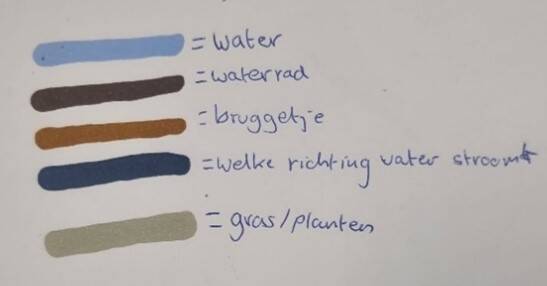 = water
= waterrad
= bruggetje
= welke richting water stroomt
= gras/planten